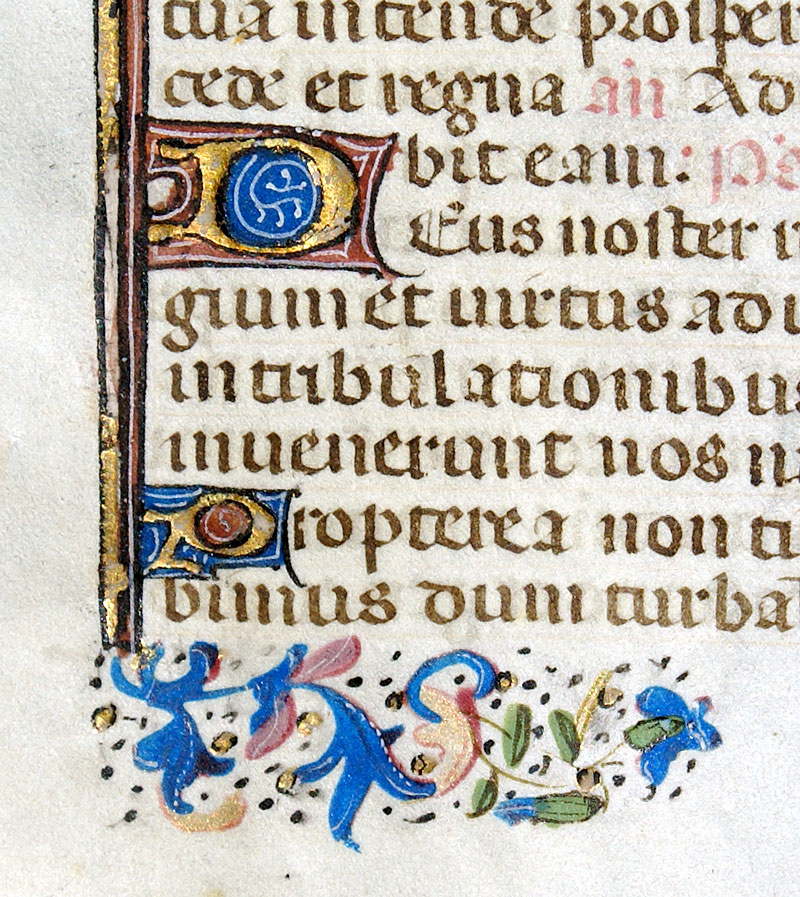 tua intende prosper
cede et regna an Ad
bit eam: ps
Deus noster
gium et uirtus ad
in tribulationibus
inuenerunt nos
Propterea non ti
bimus dum turba